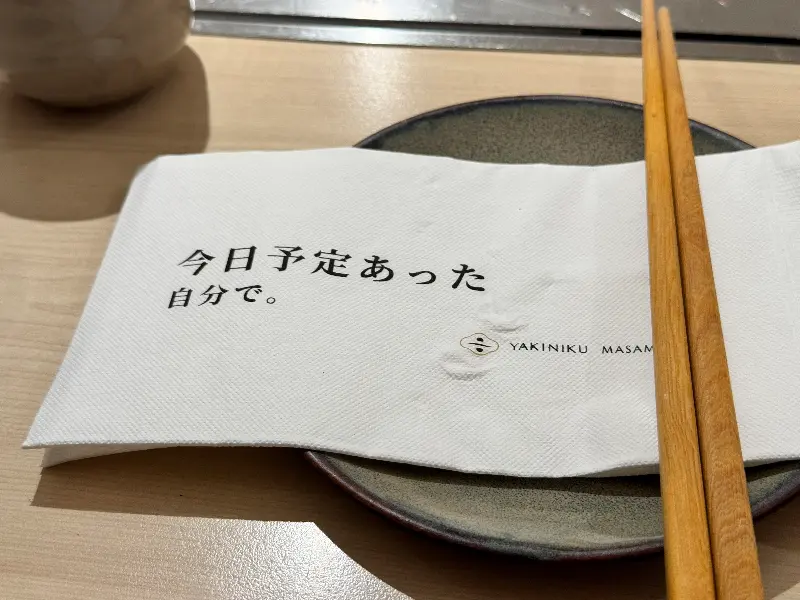 今日予定あった
自分で。
YAKINIKU MASAM